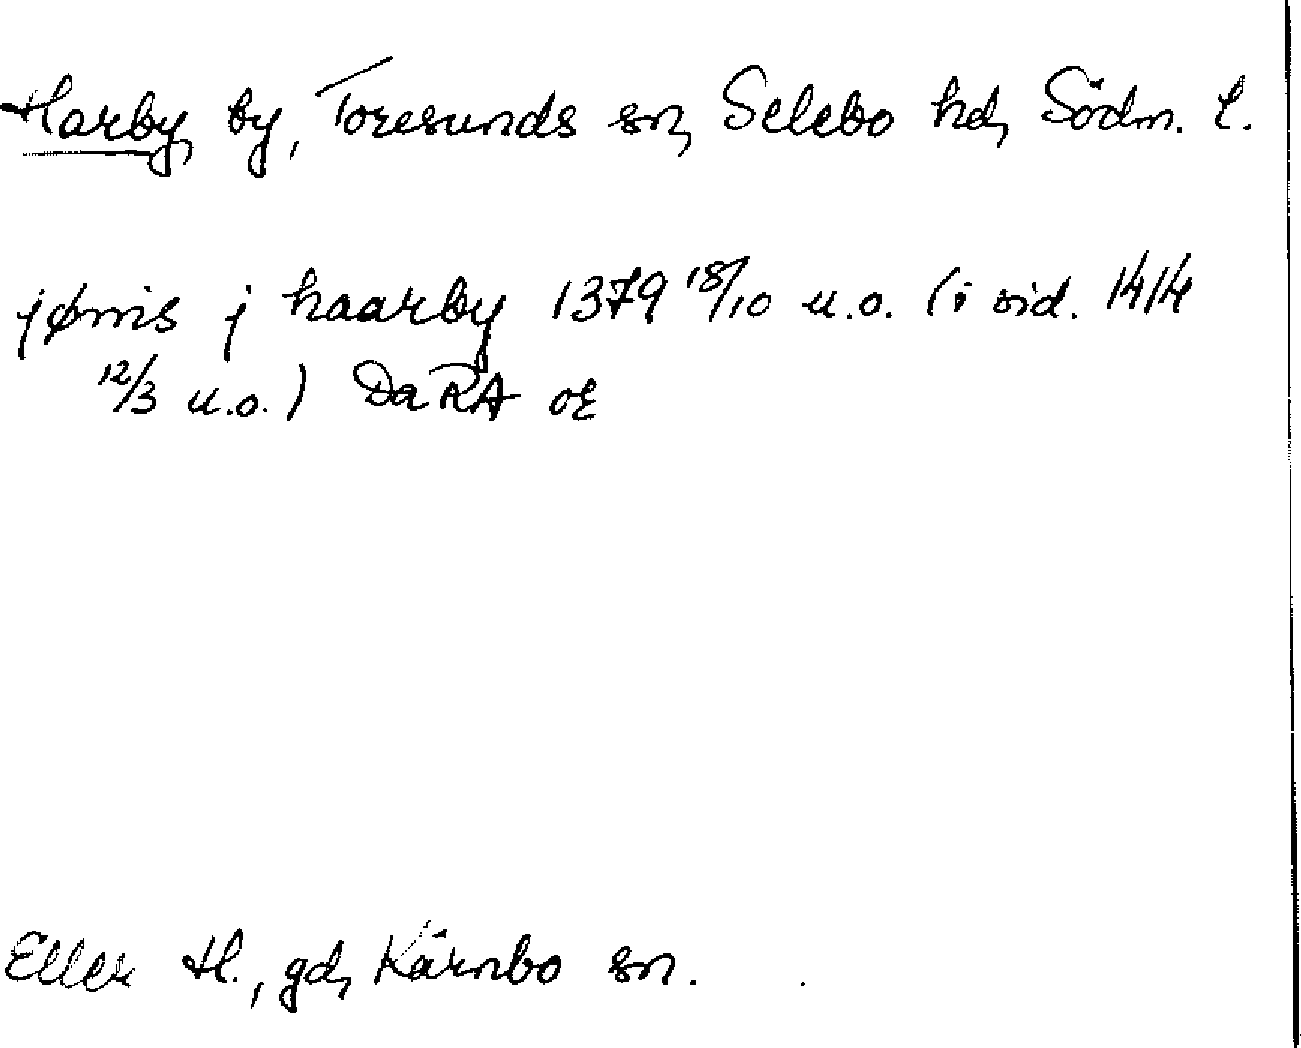 Harby, by, Toresunds sn, Selebo hd, Södm. l.
jønis j haarby 1379 18/10 u.o. (i vid. 1414
12/3 u.o.) DaRA oE
Eller H., gd, Kärnbo sn.